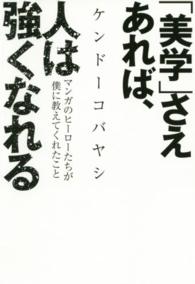 「美学」さえ
あれば、
人は
強くなれる
マンガのヒーローたちが
僕に教えてくれたこと
ケンドーコバヤシ